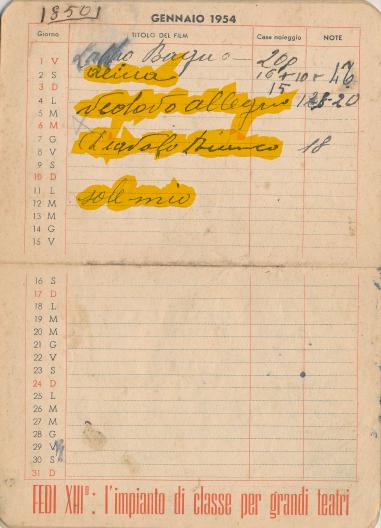 1850
GENNAIO 1954
Giorno TITOLO DEL FILM Casa noleggio NOTE
1 V Bagno 200
2 S 16 + 10 + 46
3 D 15
4 L Vedovo allegro 20
5 M
6 M
7 G Diavolo Bianco 18
8 V
9 S
10 D
11 L sole mio
12 M
13 M
14 G
15 V
16 S
17 D
18 L
19 M
20 M
21 G
22 V
23 S
24 D
25 L
26 M
27 M
28 G
29 V
30 S
31 D
FEDI XIIIª: l'impianto di classe per grandi teatri